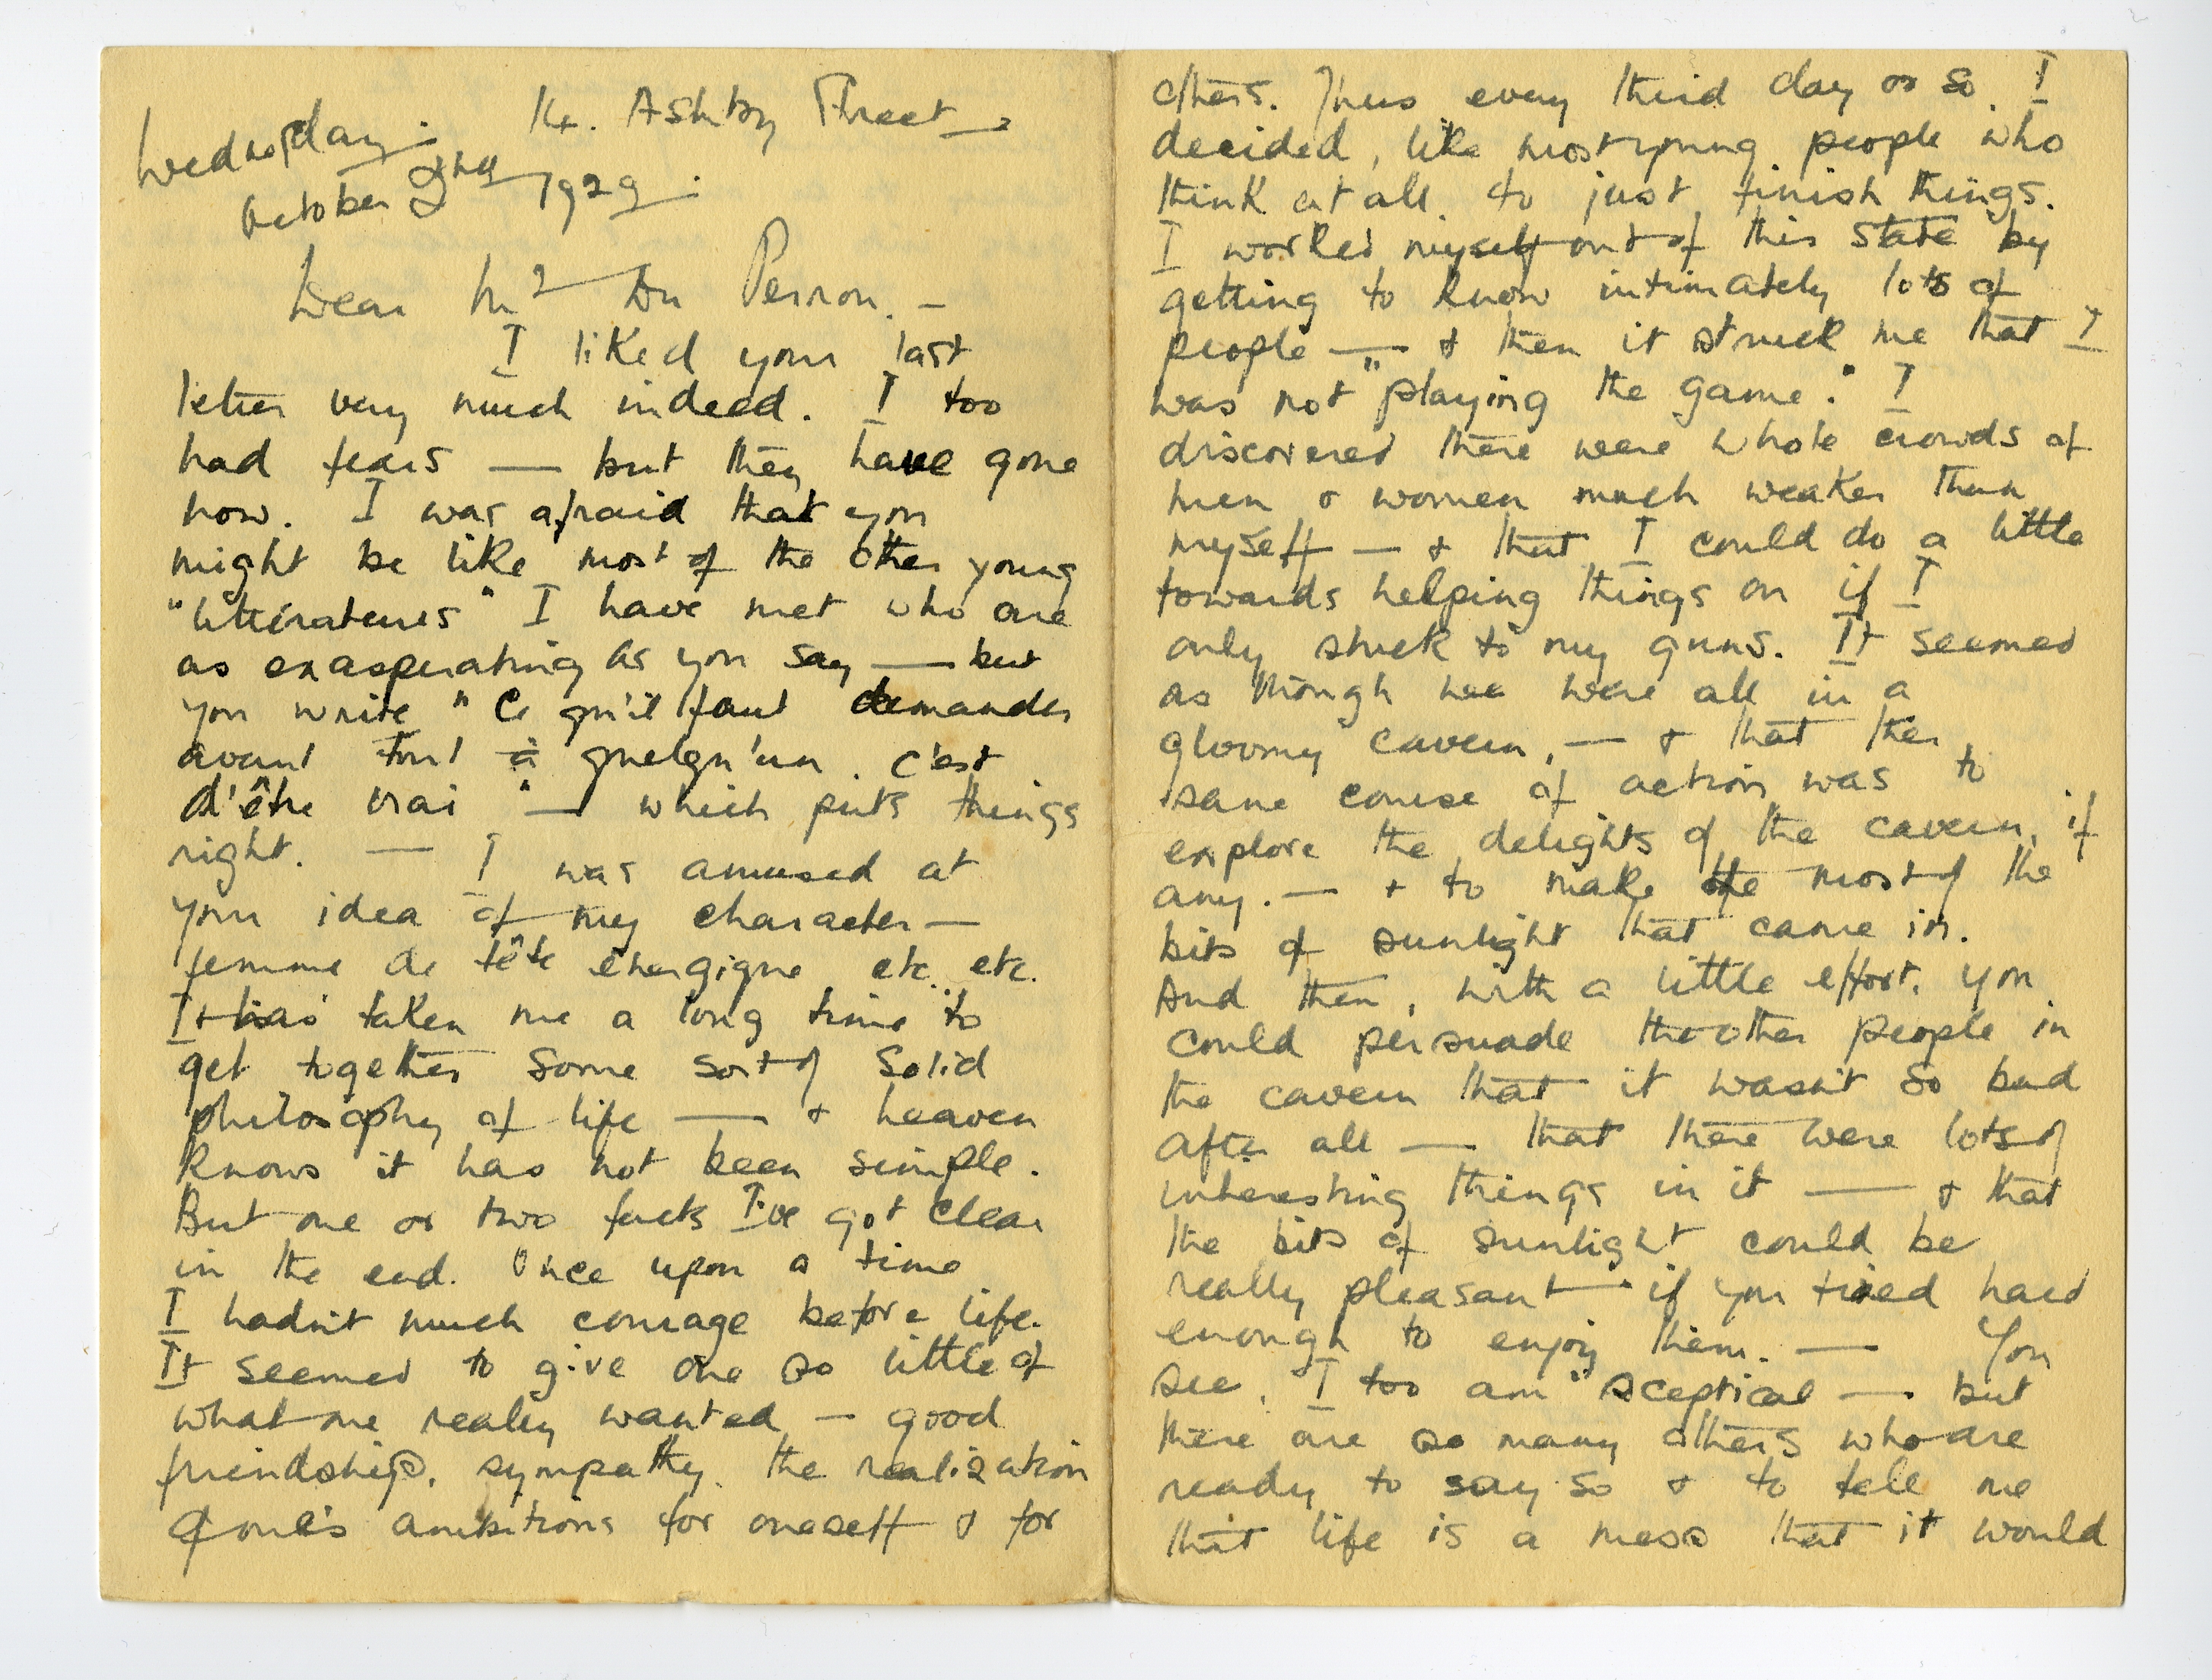 Wednesday. 14. Ashby Street
October 2nd 1929.
Dear Mr Du Perron. —
I liked your last
letter very much indeed. I too
had fears — but they have gone
now. I was afraid that you
might be like most of the other young
"littérateurs" I have met who are
as exasperating as you say — but
you write "Ce qu'il faut demander
avant tout à quelqu'un. c'est
d'être vrai" — which puts things
right. — I was amused at
your idea of my character —
femme de tête énergique etc. etc.
It has taken me a long time to
get together some sort of solid
philosophy of life — & heaven
knows it has not been simple.
But one or two facts I've got clear
in the end. Once upon a time
I hadn't much courage before life.
It seemed to give one so little of
what one really wanted — good
friendship, sympathy, the realization
of one's ambitions for oneself & for
others. Thus every third day or so. I
decided, like most young people who
think at all. to just finish things.
I worked myself out of this state by
getting to know intimately lots of
people — & then it struck me that I
was not "playing the game." I
discovered there were whole crowds of
men & women much weaker than
myself — & that I could do a little
towards helping things on if I
only stuck to my guns. It seemed
as though we were all in a
gloomy cavern, — & that the
sane course of action was to
explore the delights of the cavern, if
any. — & to make the most of the
bits of sunlight that came in.
And then, with a little effort, you
could persuade the other people in
the cavern that it wasn't so bad
after all — that there were lots of
interesting things in it — & that
the bits of sunlight could be
really pleasant if you tried hard
enough to enjoy them. — You
see, I too am "sceptical — but
there are so many others who are
ready to say so & to tell me
that life is a mess that it would